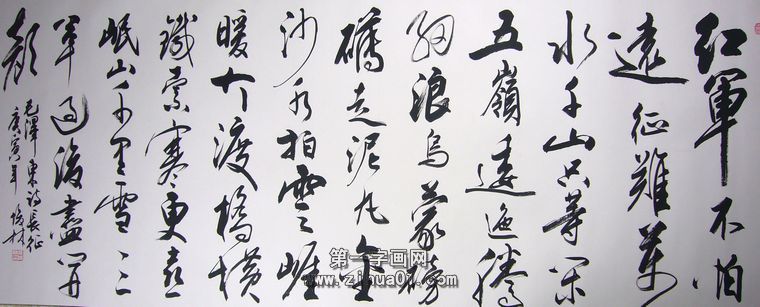 紅軍不怕
遠征難萬
水千山只等闲
五嶺逶迤騰
細浪烏蒙磅
礴走泥丸金
沙水拍雲崖
暖大渡橋橫
鐵索寒更喜
岷山千里雪三
軍過後盡開
顏
毛澤東詩長征
庚寅年
第一字画网
www.zihua01.com